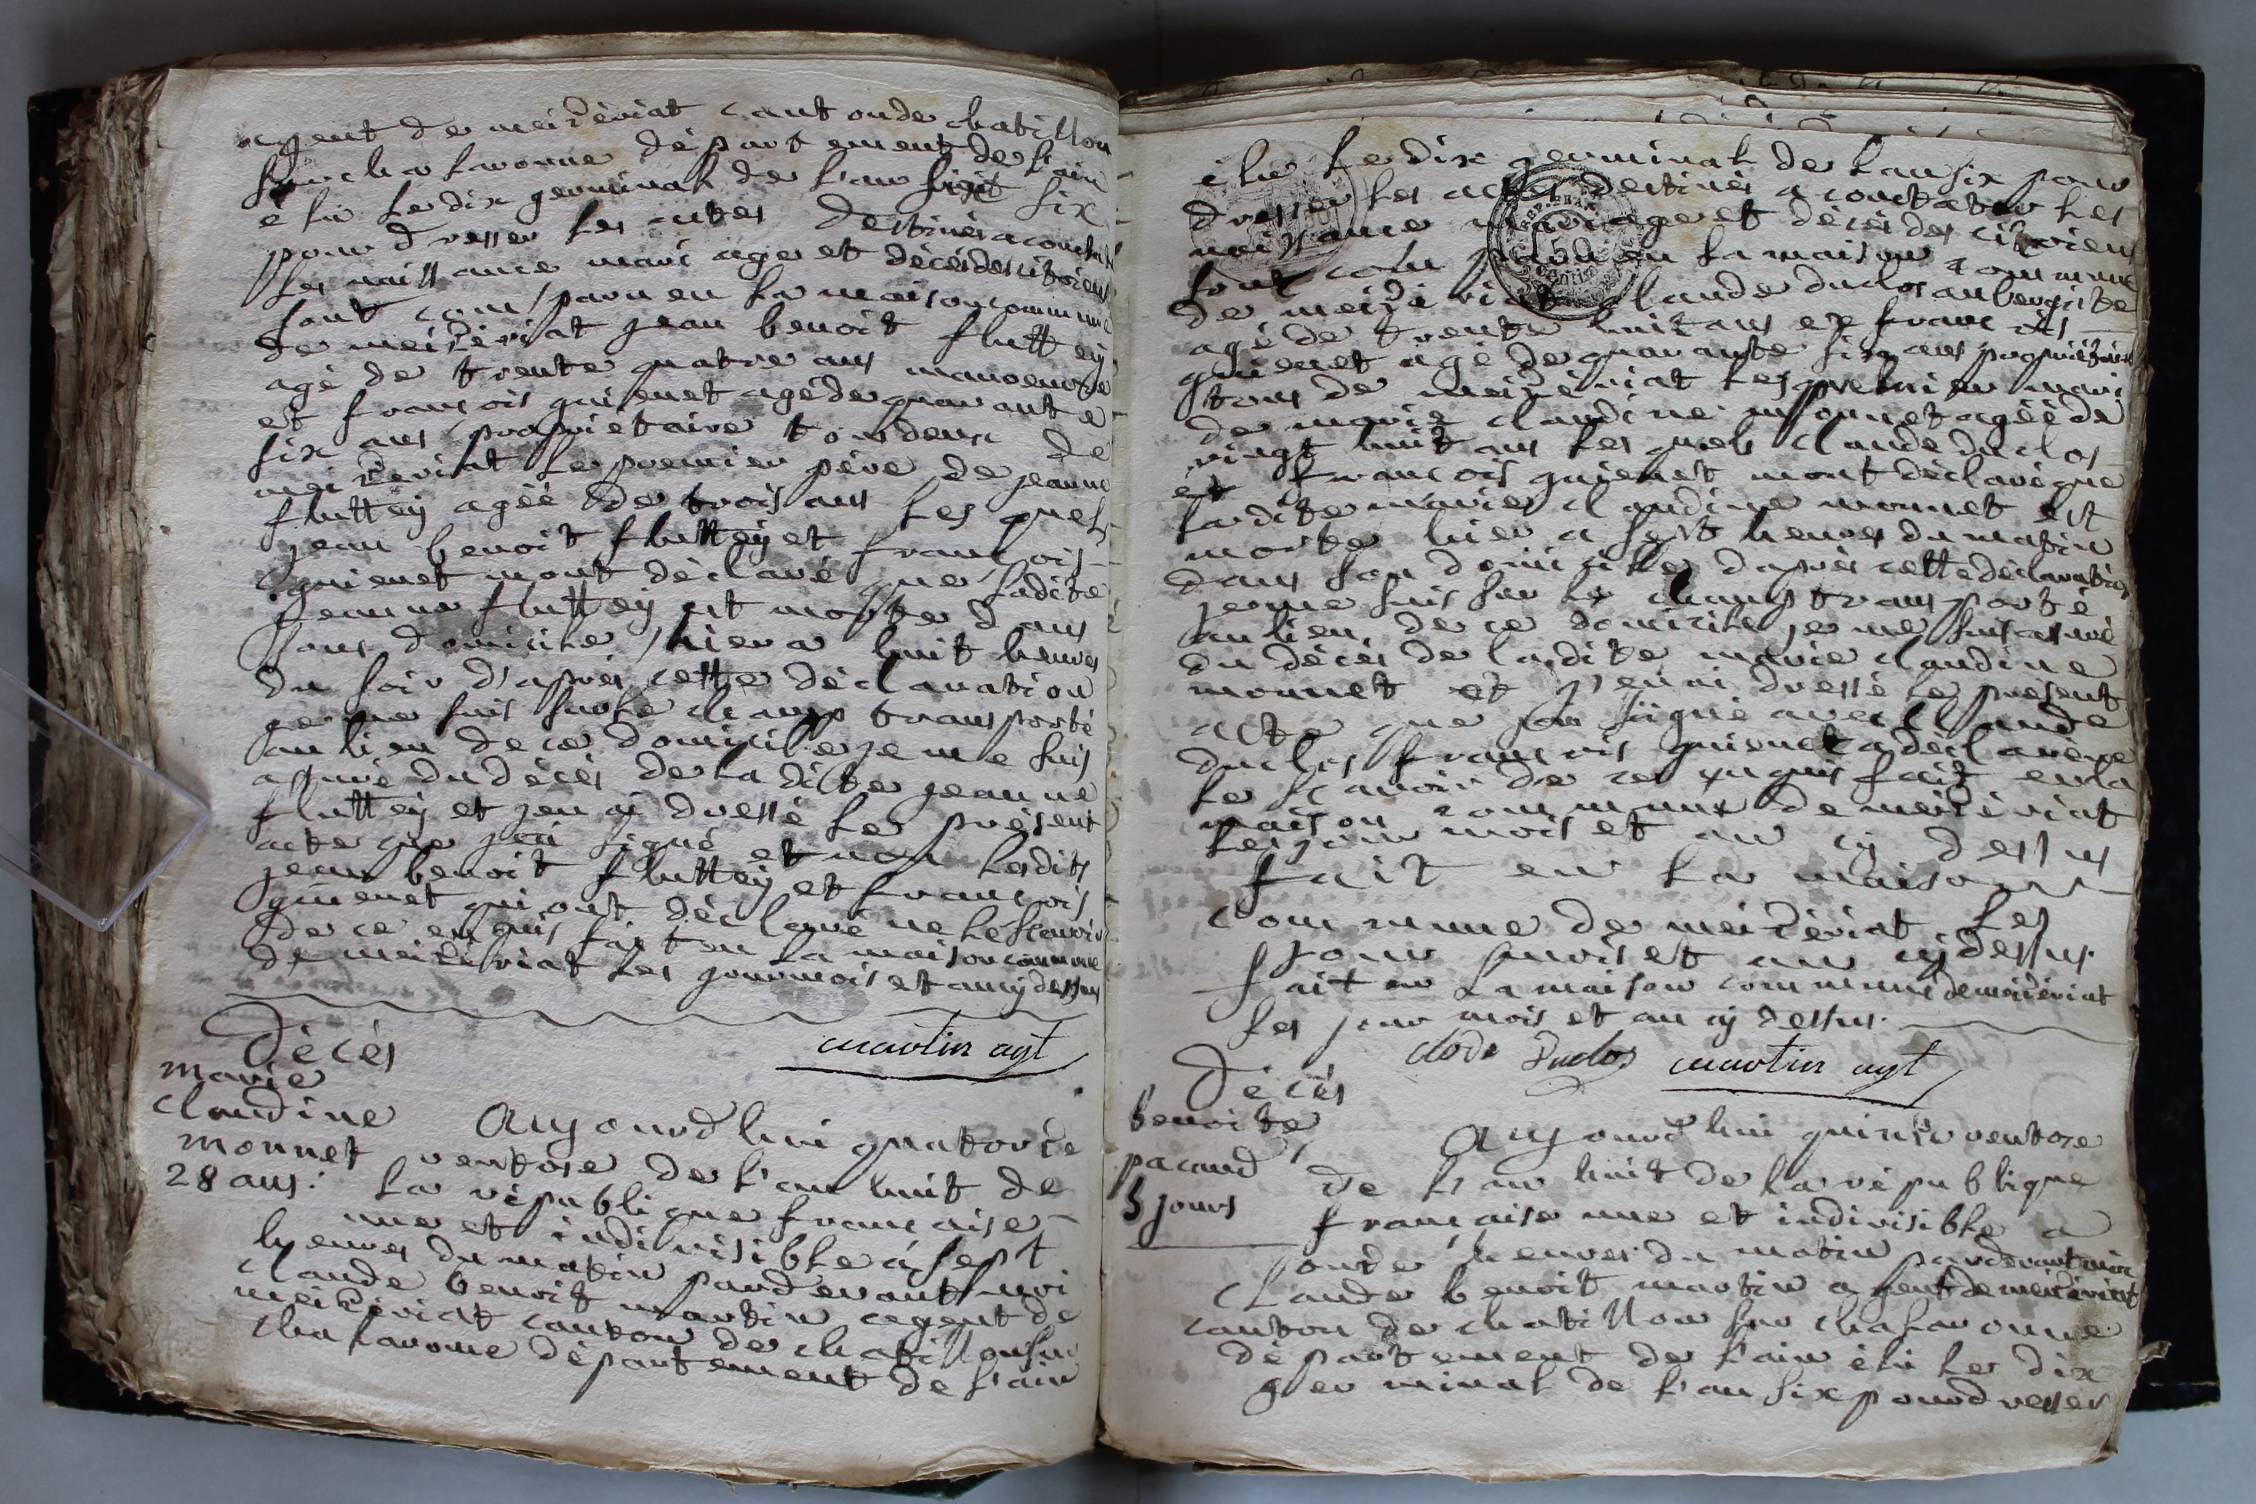 agent de meizériat canton de chatillon
sur chalaronne département de l'ain
élu le dix germinal de l'an six
pour dresser les actes destinés a constater
les naissance mariages et décés des citoiens
sont comparu en la maison commune
de meizériat jean benoit fluttey
agé de trente quatre ans manoeuvre
et françois guienet agé de quarante
six ans propriétaire tous deux de
meizeriat le premier pére de jeanne
fluttey agéé de trois ans lesquels
jean benoit fluttey et françois
guienet mont déclaré que ladite
jeanne fluttey est morte dans
sons domicile hier a huit heures
du soir d'aprés cette déclaration
je me suis sur le champ transporté
au lieu de ce domicile je me suis
assuré du décés de la dite jeanne
fluttey et jen ai dressé le présent
acte que jai signé et non lesdits
jean benoit fluttey et françois
guienet qui ont déclaré ne le scavoir
de ce enquis fait en la maison commune
de meizériat les jour mois et an cy dessus
martin agt
décés
marie
claudine
monnet
28 ans:
Aujourd'hui quatorze
ventose de l'an huit de
la républiquer française
une et indivisible á sept
heures du matin pardevant moi
claude benoit martin agent de
meizériat canton de chatillon sur
chalarone département de l'ain
élu le dix germinal de l'an six pour
dresser les actes destinés a constater les
naissance mariage et décés des citoiens
sont comparu en la maison commune
de meizériat claude duclos aubergiste
agé de trente huit ans et françois
guienet agé de quarante six ans propriétaire
tous de meizériat les premier mari
de marie claudine monnet agéé de
vingt huit ans les quels claude duclos
et françois guienet mont déclaré que
ladite marie claudine monnet est
morte hier a sept heures du matin
dans son domicille d'aprés cette déclaration
je me suis sur le champ transporté
au lieu de ce domicile je me suis assuré
du décés de ladite marie claudine
monnet et j'en ai dressé le présent
acte que jai signé avec claude
duclos françois guienet a déclaré ne
le scavoir de ce enquis fait en la
maison commune de meizériat
les jour mois et an cy dessus
fait en la maison
commune de meizériat les
jour mois et an cy dessus.
fait en la maison commune de meizériat
les jour mois et an cy dessus.
clode Duclos martin agt
décés
benoite
pacaud
5 jours
Aujourd'hui quinze ventose
de l'an huit de la république
française une et indivisible a
onze heures du matin pardevant moi
claude benoit martin agent de meizériat
canton de chatillon sur chalaronne
département de l'ain élu le dix
germinal de l'an six pour dresser
REP. FRA.
50